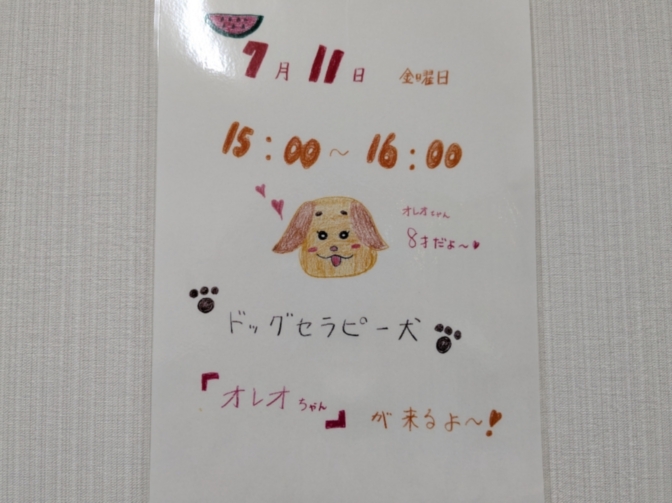 7月11日 金曜日
15:00～16:00
オレオちゃん
8才だよ～♥
ドッグセラピー犬
「オレオちゃん」が来るよ～!